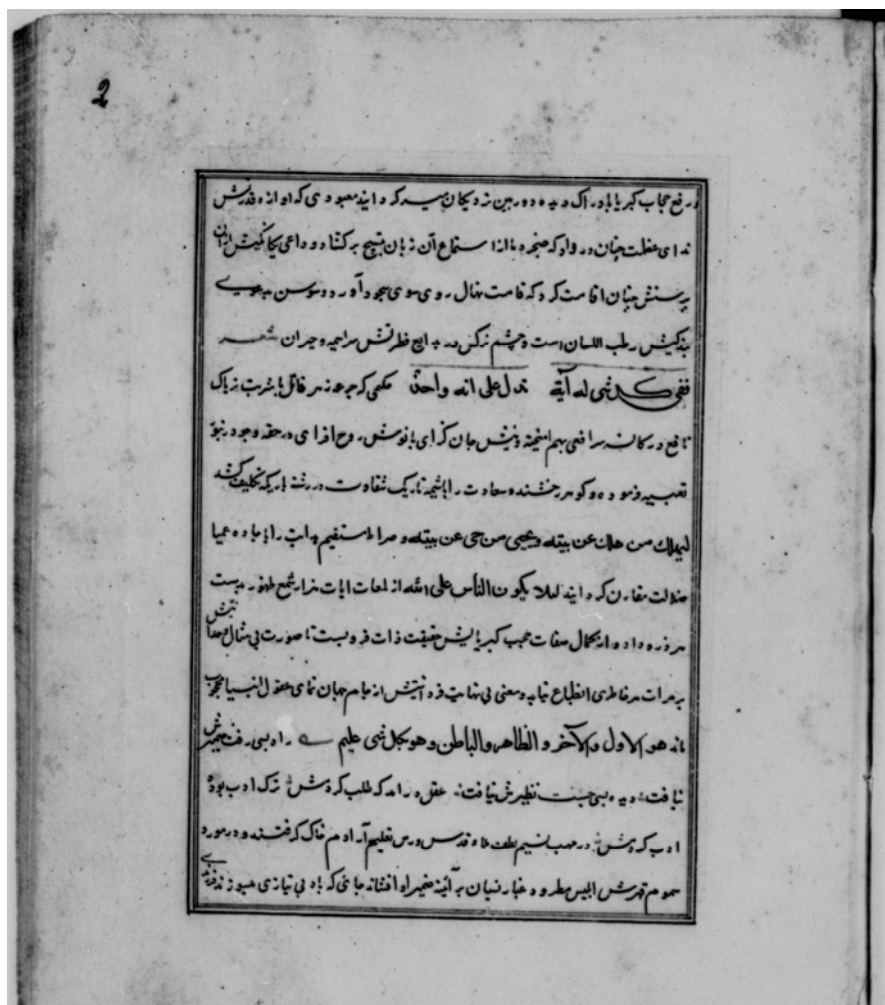 2
و رفع حجاب کبریا با دراک دیده دوربین نزدیکان رسید کرد و ایند معبودی که اوازه قدرتش
ندای عظمت چنان در داد که غنچه با از استماع آن زبان تسبیح برکشاد و داعی یکانکیش
پرستش چنان اقامت کرد که قامت نهال روی سوی سجود آورد و سوسن
بندکیش رطب اللسان است و چشم نرکس در فطرتش سراسیمه و حیران شعر
ففی کل شی له آیة تدل علی انه واحد حکمی که جرعه زهر قاتل با شربت تریاک
نافع در کاسه هم امیخته و نیش جان کزای با نوش روح افزای در حقه وجود
تعبیه فرموده و کوهر رخشنده سعادت را با شبه تاریک شقاوت در رشته باریک تکلیف کشید
لیهلک من هلک عن بینة و یحیی من حی عن بینة و صراط مستقیم هدایت را با جاده عمیا
ضلالت مقارن کرد و ایند لئلا یکون الناس علی الله از لمعات ایات هزار شمع ظهور بدست
هر ذره داد و از کمال صفات حجب کبریایش حقیقت ذات فرو بست تا صورت بی مثال
بر مرات هر خاطری انطباع نیابد و معنی بی نهایت از جام جهان نمای عقول انبیا محجوب
ماند هو الاول و الآخر و الظاهر و الباطن و هو بکل شی علیم راه بسی رفت
نیافت دیده بسی جست نظیرش نیافت عقل در امد که طلب کردمش ترک ادب بود
ادب کردمش در مهب نسیم لطف قدس درس تعلیم آرادم خاک کرفتند و در مورد
سموم قهرش ابلیس مطرود غبار نسیان بر آئینه ضمیر افشاند جائی که باد بی نیازی